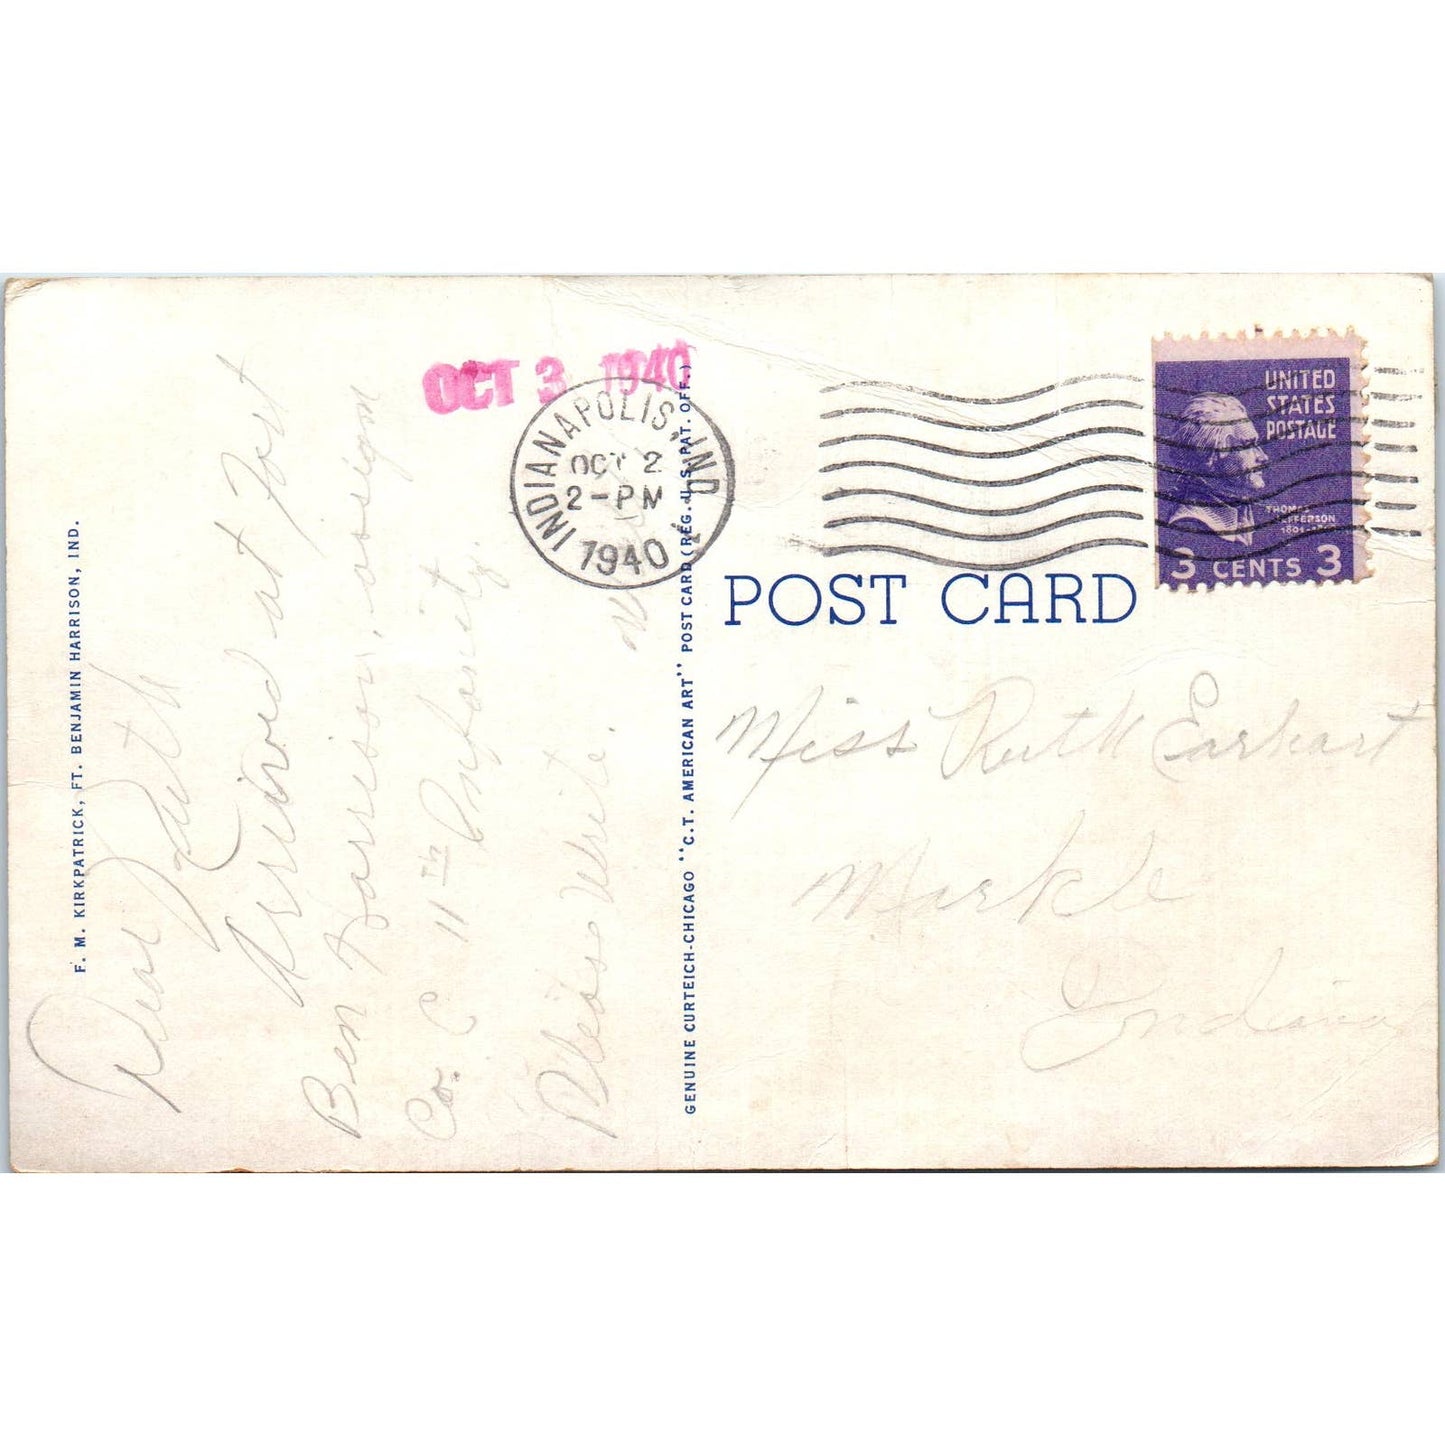 F. M. KIRKPATRICK, FT. BENJAMIN HARRISON, IND.
Dear Ruth
Arrived at Fort
Ben Harrison, assign
Co. C 11th Infanity.
Please Write.
OCT 3 1940
INDIANAPOLIS, IND.
OCT 2
2-PM
1940
GENUINE CURTEICH-CHICAGO "C.T. AMERICAN ART" POST CARD (REG. U.S. PAT. OFF.)
UNITED
STATES
POSTAGE
THOMAS
JEFFERSON
3 CENTS 3
POST CARD
Miss Ruth Earhart
Markle
Indiana